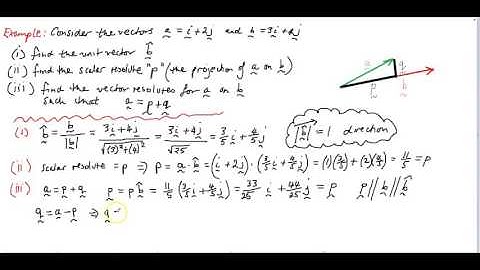 Example: Consider the vectors a = i + 2j and b = 3i + 4j
(i) find the unit vector b̂
(ii) find the scalar resolute "p" (the projection of a on b)
(iii) find the vector resolutes for a on b
such that a = p + q
a q p b
(i) b̂ = b/|b| = (3i + 4j)/√((3)²+(4)²) = (3i + 4j)/√25 = 3/5 i + 4/5 j
|b̂| = 1 direction
(ii) scalar resolute = p ⇒ p = a · b̂ = (i + 2j) · (3/5 i + 4/5 j) = (1)(3/5) + (2)(4/5) = 11/5 = p
(iii) a = p + q p = p b̂ = 11/5 (3/5 i + 4/5 j) = 33/25 i + 44/25 j = p p || b || b̂
q = a - p ⇒ q =